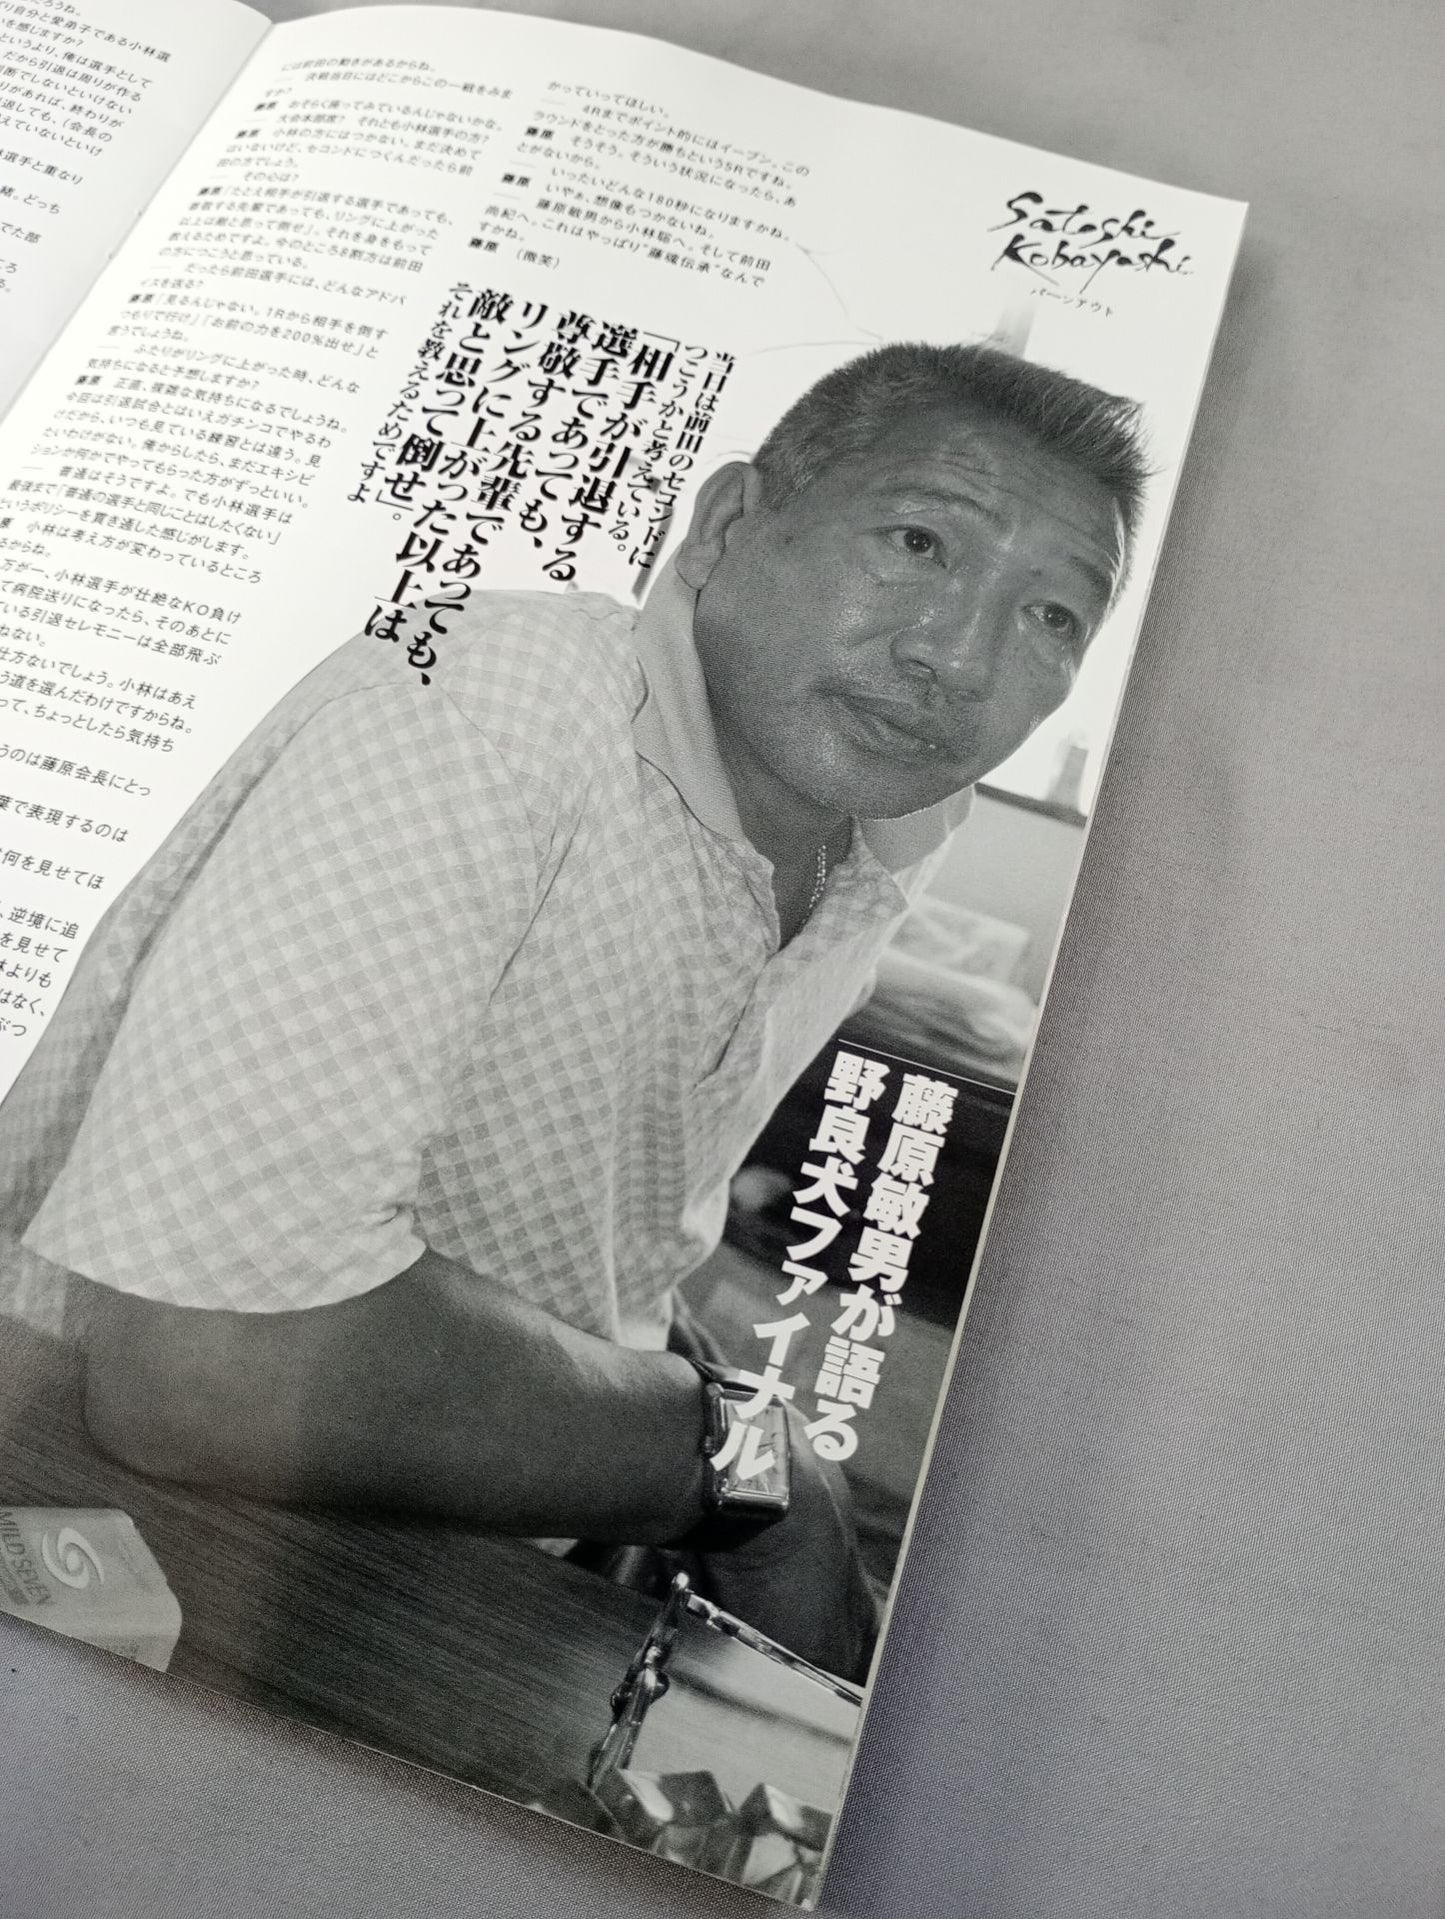 だろうね。
り自分と愛弟子である小林選
いを感じますか？
というより、俺は選手として
だから引退は周りが作る
判断でしないといけない
りがあれば、終わりが
退しても、（会長の
えていないといけ
選手と重なり
緒。どっち
でた部
ころ
る。
には前田の動きがあるからね。
── 決戦当日にはどこからこの一戦をみま
すか？
藤原 おそらく座ってみているんじゃないかな。
── 大会本部席？ それとも小林選手の方？
藤原 小林の方にはつかない。まだ決めて
はいないけど、セコンドにつくんだったら前
田の方でしょう。
── その心は？
藤原 「たとえ相手が引退する選手であっても、
尊敬する先輩であっても、リングに上がった
以上は敵と思って倒せ」。それを身をもって
教えるためですよ。今のところ8割方は前田
の方につこうと思っている。
── だったら前田選手には、どんなアドバ
イスを送る？
藤原 「見るんじゃない。1Rから相手を倒す
つもりで行け」「お前の力を200％出せ」と
言うでしょうね。
── ふたりがリングに上がった時、どんな
気持ちになると予想しますか？
藤原 正直、複雑な気持ちになるでしょうね。
今回は引退試合とはいえガチンコでやるわ
けだから、いつも見ている練習とは違う。見
たいわけがない。俺からしたら、まだエキシビ
ションか何かでやってもらった方がずっといい。
── 普通はそうですよ。でも小林選手は
最後まで「普通の選手と同じことはしたくない」
というポリシーを貫き通した感じがします。
原 小林は考え方が変わっているところ
るからね。
万が一、小林選手が壮絶なKO負け
て病院送りになったら、そのあとに
ている引退セレモニーは全部飛ぶ
ねない。
仕方ないでしょう。小林はあえ
う道を選んだわけですからね。
って、ちょっとしたら気持ち
うのは藤原会長にとっ
葉で表現するのは
何を見せてほ
、逆境に追
を見せて
林よりも
はなく、
ぶつ
かっていってほしい。
── 4Rまでポイント的にはイーブン。この
ラウンドをとった方が勝ちという5Rですね。
藤原 そうそう。そういう状況になったら、あ
とがないから。
── いったいどんな180秒になりますかね。
藤原 いやぁ、想像もつかないね。
── 藤原敏男から小林聡へ。そして前田
尚紀へ。これはやっぱり“藤魂伝承”なんで
すかね。
藤原 （微笑）
Satoshi
Kobayashi
バーンアウト
当日は前田のセコンドに
つこうかと考えている。
「相手が引退する
選手であっても、
尊敬する先輩であっても、
リングに上がった以上は
敵と思って倒せ」。
それを教えるためですよ
藤原敏男が語る
野良犬ファイナル
MILD SEVEN